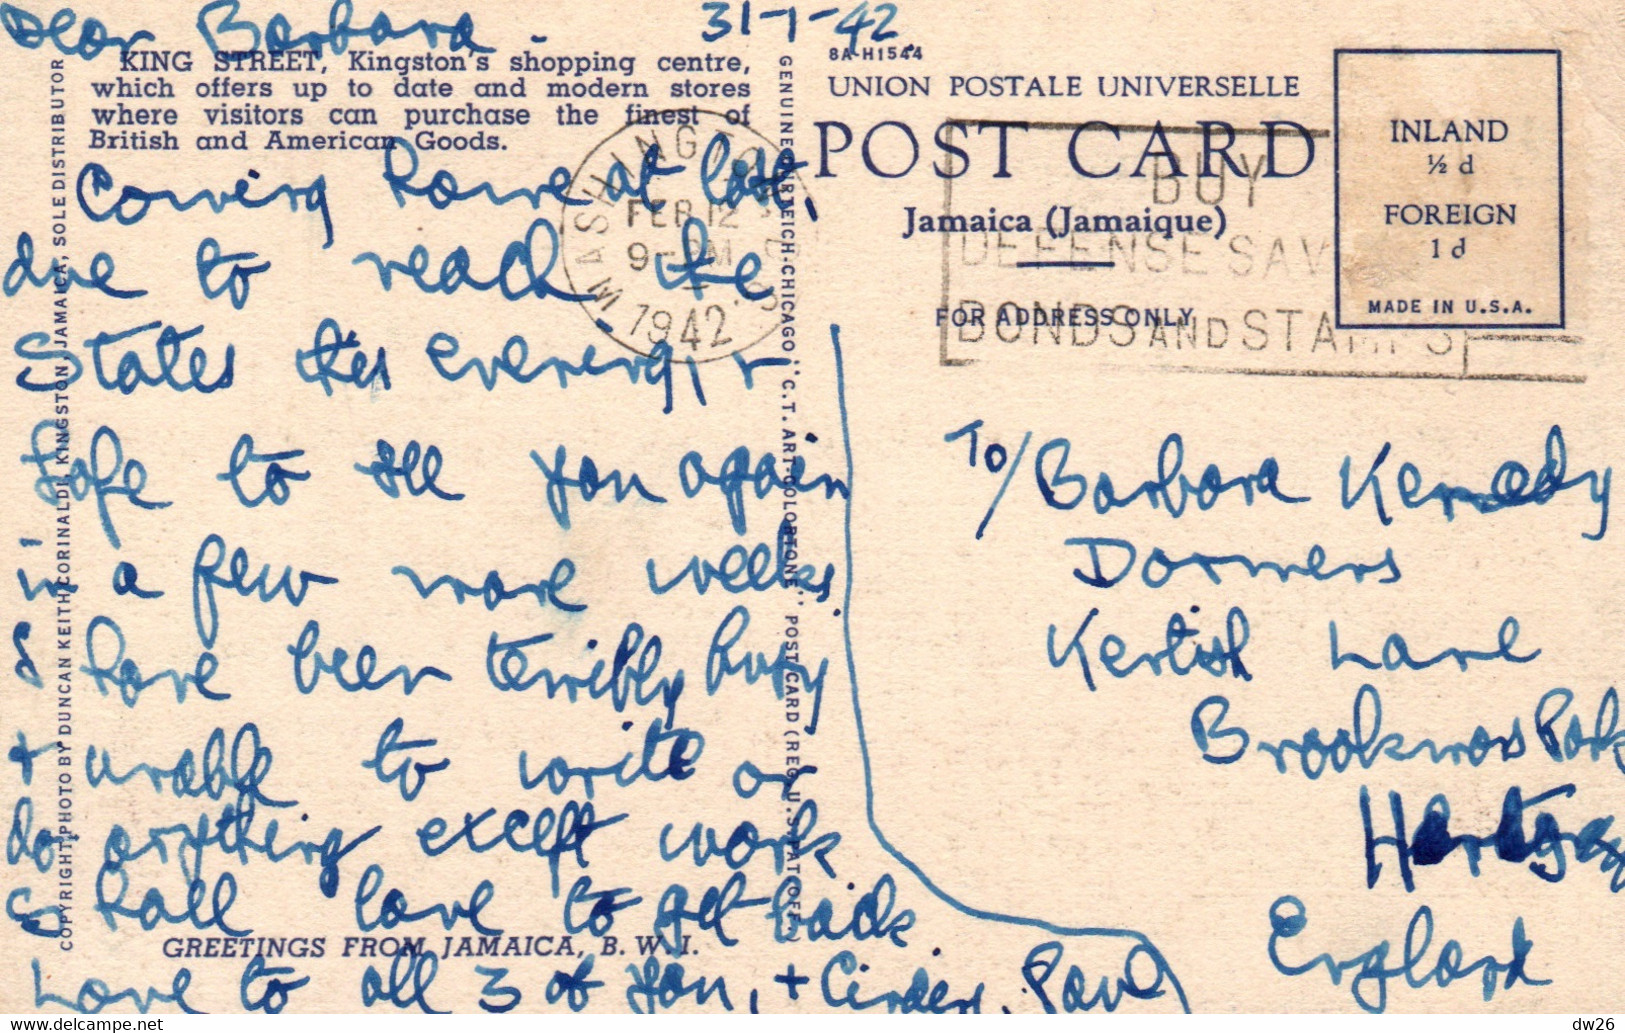 Dear Barbara. 31-1-42.
KING STREET, Kingston's shopping centre,
which offers up to date and modern stores
where visitors can purchase the finest of
British and American Goods.
Coming home at last.
due to reach the
States this evening, +
hope to see you again
in a few more weeks.
I have been terribly busy
+ unable to write or
do anything except work
Shall love to get back
Love to all 3 of you, +
GREETINGS FROM JAMAICA, B. W. I.
COPYRIGHT PHOTO BY DUNCAN KEITH CORINALDI, KINGSTON, JAMAICA, SOLE DISTRIBUTOR
GENUINE CURTEICH-CHICAGO "C.T. ART-COLORTONE" POST CARD (REG. U.S. PAT. OFF.)
8A-H1544
UNION POSTALE UNIVERSELLE
POST CARD
Jamaica (Jamaique)
FOR ADDRESS ONLY
INLAND
½ d
FOREIGN
1 d
MADE IN U.S.A.
WASHINGTON, D.C.
FEB 12
9-PM
1942
BUY
DEFENSE SAV
BONDS AND STAMPS
To/ Barbara Kennedy
Dormers
Kentish Lane
Brookmans Park
England
dw26